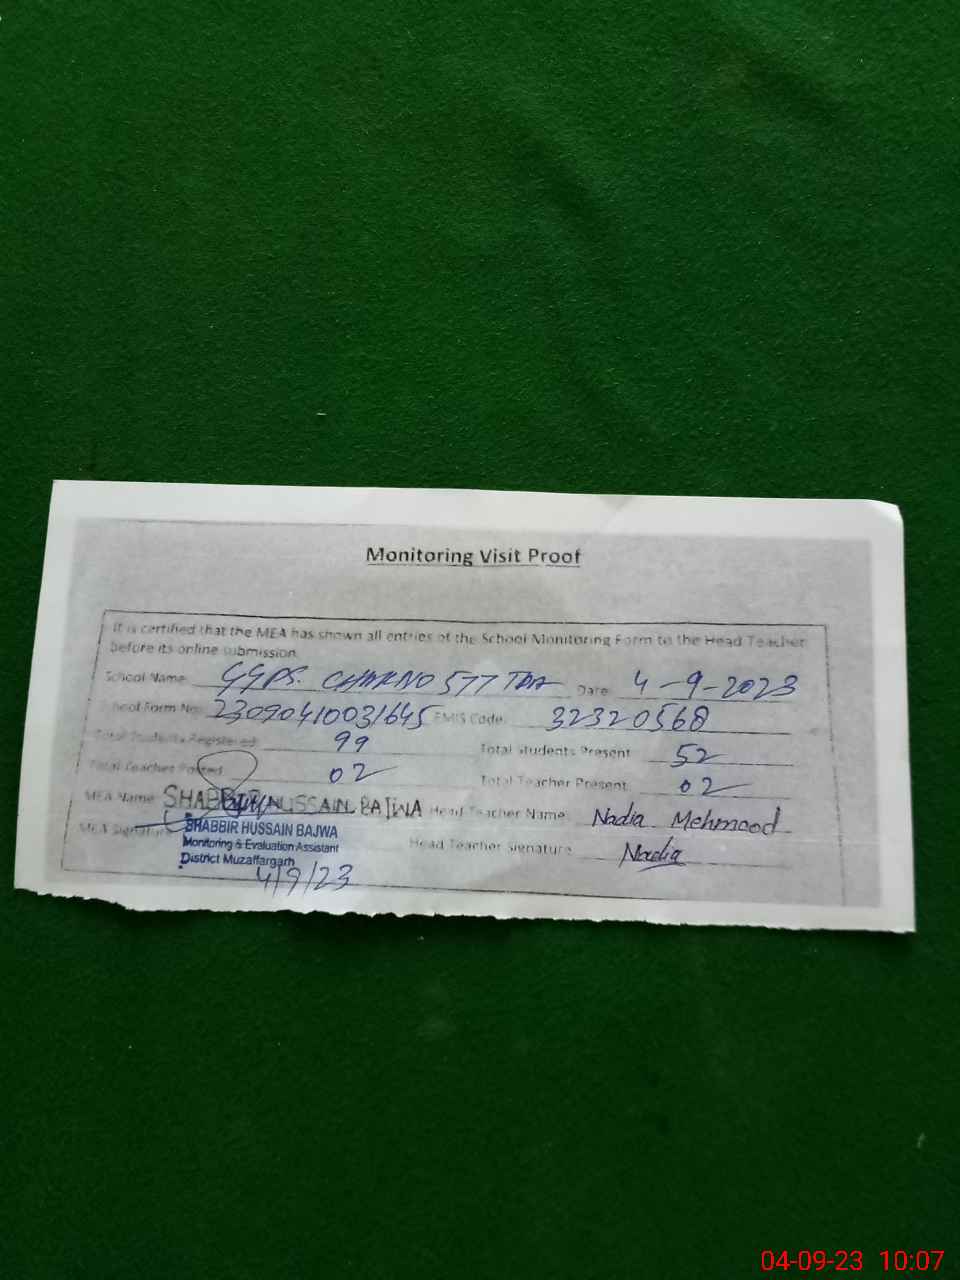 Monitoring Visit Proof
It is certified that the MEA has shown all entries of the School Monitoring Form to the Head Teacher
before its online submission.
School Name GGPS. CHAK NO 577 TDA Date 4-9-2023
School Form No: 23090410031645 EMIS Code: 32320568
Total Students Registered: 99 Total Students Present 52
Total Teacher Posted 02 Total Teacher Present 02
MEA Name: SHABBIR HUSSAIN BAJWA Head Teacher Name: Nadia Mehmood
MEA Signature Head Teacher Signature Nadia
SHABBIR HUSSAIN BAJWA
Monitoring & Evaluation Assistant
District Muzaffargarh
4/9/23
04-09-23 10:07